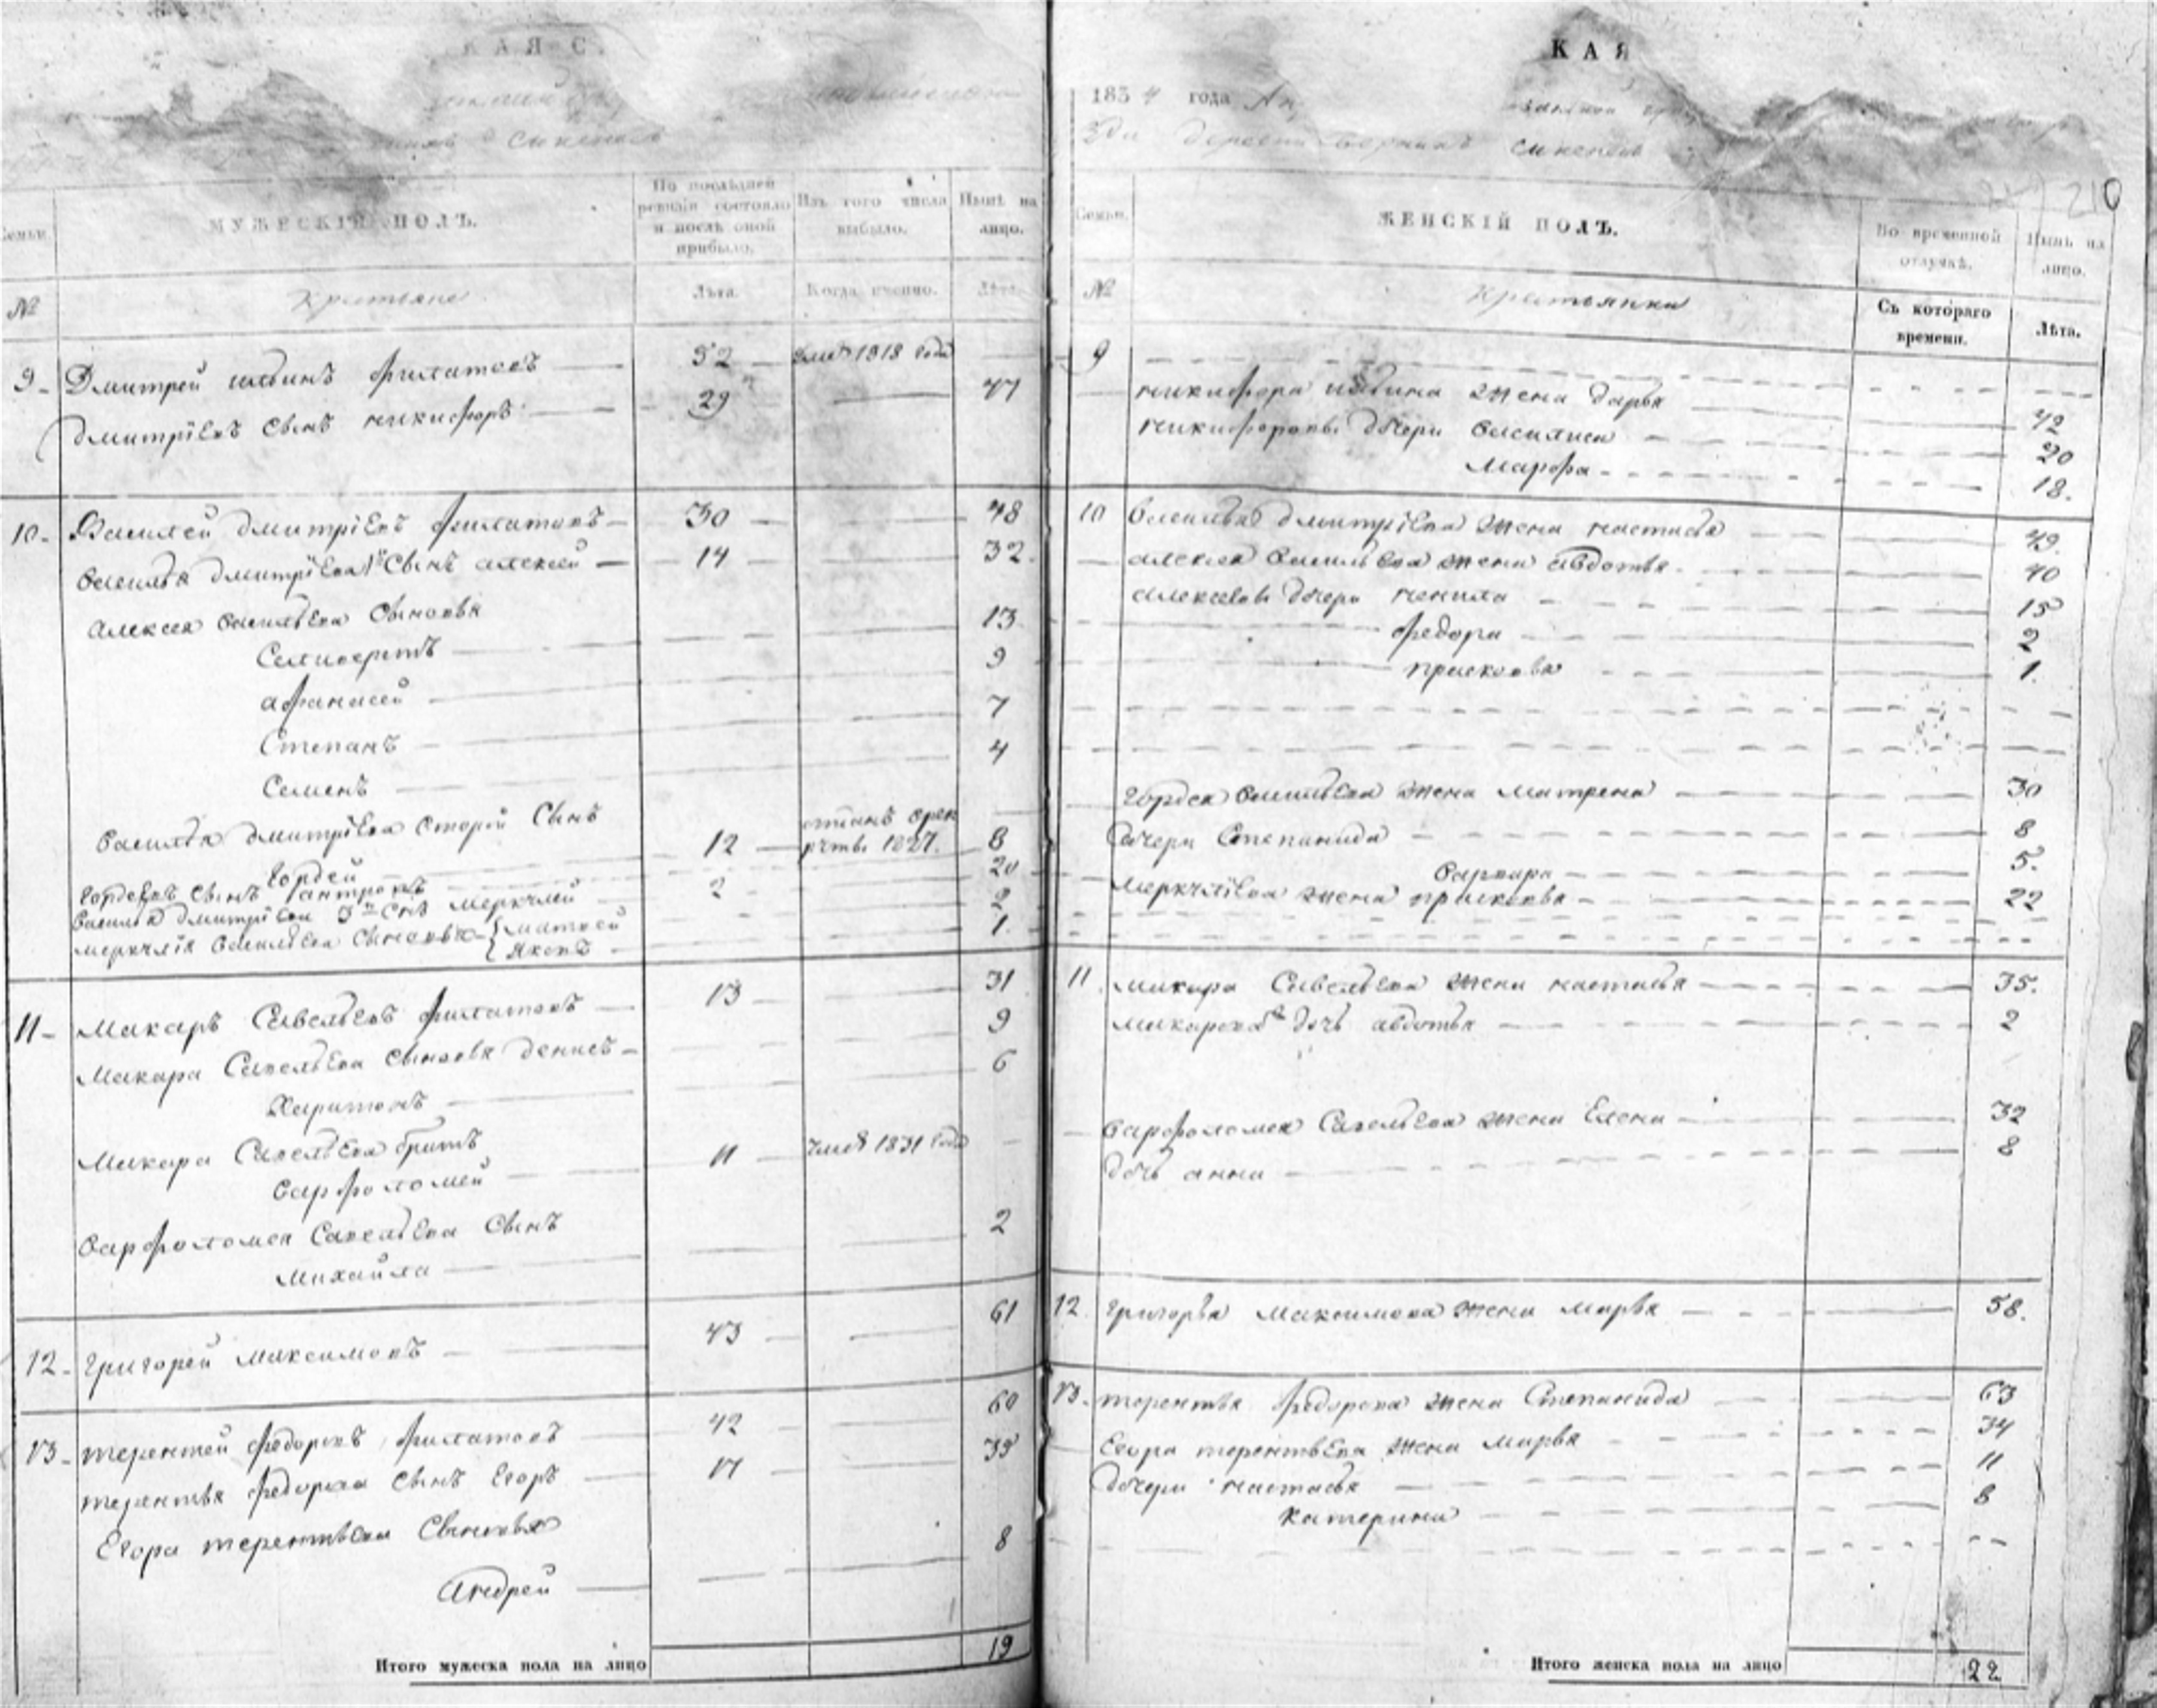 КАЯ С.
Семьи.
МУЖЕСКІЙ ПОЛЪ.
По послѣдней ревизіи состояло и послѣ оной прибыло.
Изъ того числа выбыло.
Нынѣ на лицо.
№
Крестьяне
Лѣта.
Когда именно.
Лѣта.
9 Дмитрей ильинъ филатовъ 52 умер 1818 года
дмитріевъ сынъ никифоръ 29 47
10 Василей дмитріевъ филатовъ 30 48
василья дмитріева 1й сынъ алексей 14 32
Алексея васильева сыновья 13
Селиверстъ 9
афанасей 7
Степанъ 4
Семенъ
василья дмитріева второй сынъ
гордей 12 1827. 8
гордеевъ сынъ антропъ 20
василья дмитріева 3й снъ меркулей 2 2
меркулія васильева сыновья матвей 1
яковъ
11 Макаръ Савельевъ филатовъ 13 31
Макара Савельева сыновья денисъ 9
Харитонъ 6
Макара Савельева братъ
варфоломей 11 умер 1831 года
варфоломея Савельева сынъ 2
михайла
12 григорей максимовъ 43 61
13 терентей федоровъ филатовъ 42 60
терентья федорова сынъ Егоръ 17 35
Егора терентьева Сыновья
андрей 8
Итого мужеска пола на лицо 19
КАЯ
1834 года
деревни
210
Семьи.
ЖЕНСКІЙ ПОЛЪ.
Во временной отлучкѣ.
Нынѣ на лицо.
№
Крестьянки
Съ котораго времени.
Лѣта.
9
никифора ильина жена дарья 42
никифоровы дочери василиса 20
марфа 18.
10 василья дмитріева жена настасья 49.
алексея васильева жена авдотья 40
алексеевы дочери ненила 15
федора 2
прасковья 1.
гордея васильева жена матрена 30
дочери Степанида 8
варвара 5.
меркуліева жена прасковья 22
11. макара Савельева жена настасья 35.
макарова дочь авдотья 2
варфоломея Савельева жена Елена 32
дочь анна 8
12. григорья максимова жена марья 58.
13. терентья федорова жена Степанида 63
Егора терентьева жена марья 34
дочери настасья 11
катерина 8
Итого женска пола на лицо 22